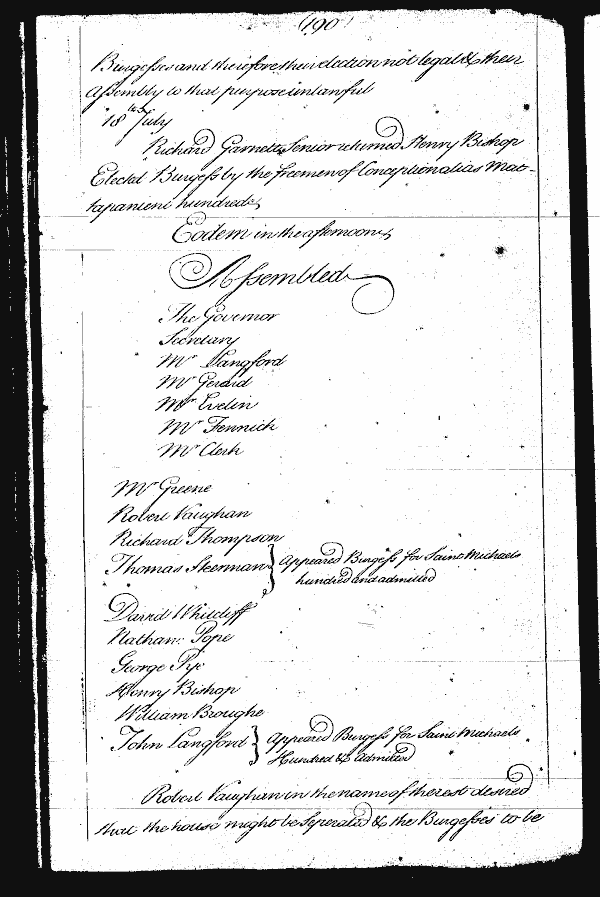 (190)
Burgesses and therefore their election not legal & their
Assembly to that purpose unlawful
18th July
Richard Garnett Senior returned Henry Bishop
Elected Burgess by the freemen of Conception alias Mat-
tapanient hundred
Eodem in the afternoon
Assembled
The Governor
Secretary
Mr Langford
Mr Gerard
Mr Evelin
Mr Fennick
Mr Clerk
Mr Greene
Robert Vaughan
Richard Thompson
Thomas Steerman } Appeared Burgess for Saint Michaels
hundred and admitted
David Whitcliff
Nathan: Pope
George Pye
Henry Bishop
William Broughe
John Langford } Appeared Burgess for Saint Michaels
Hundred & Admitted
Robert Vaughan in the name of the rest desired
that the house might be Seperated & the Burgesses to be